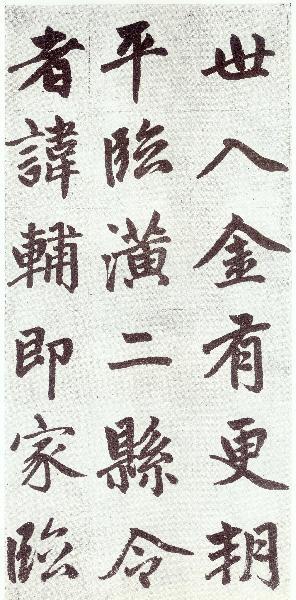 世入金有更朔
平臨潢二縣令
者諱輔即家臨